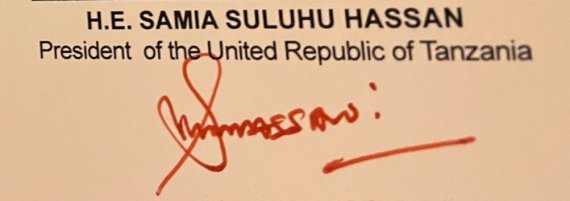 H.E. SAMIA SULUHU HASSAN
President of the United Republic of Tanzania